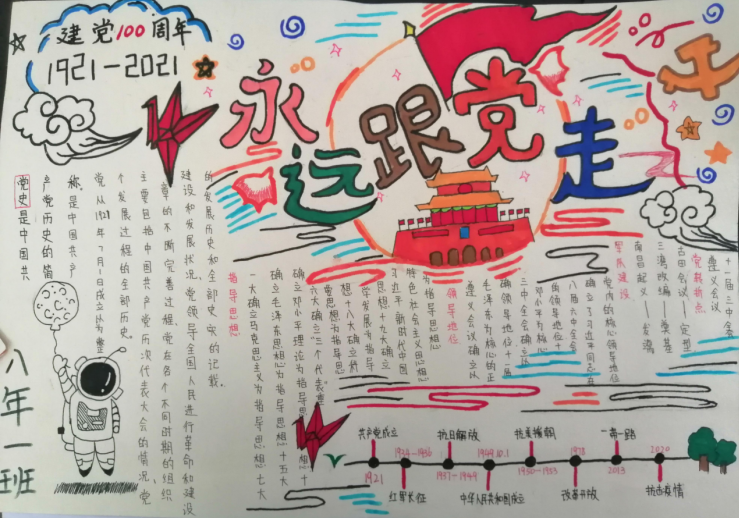 建党100周年
1921-2021
永远跟党走
党史是中国共
产党历史的简
称,是中国共产
党从1921年7月1日成立以为整
个发展过程的全部历史。
主要包括中国共产党历次代表大会的情况、党
章的不断完善过程、党在各个不同时期的组织
建设和发展状况、党领导全国人民进行革命和建设
的发展历史和全部史实的记载。
指导思想
一大确立马克思主义为指导思想 七大
确立毛泽东思想为指导思想 十五大
确立邓小平理论为指导思想 十
六大确立"三个代表"重
要思想为指导思
想 十八大确立科
学发展为指导
思想 十九大确立
习近平新时代中国
特色社会主义思想
为指导思想
领导地位
遵义会议确立以
毛泽东为核心的正
确领导地位 十一届
三中全会确立以
邓小平为核心
的领导地位 十
八届六中全会
确立了习近平同志在
党内的核心领导地位
军队建设
南昌起义—发端
三湾改编—奠基
古田会议—定型
党转折点
遵义会议
十一届三中全会
八年一班
共产党成立
1921
1934-1936
红军长征
抗日解放
1937-1949
1949.10.1
中华人民共和国成立
抗美援朝
1950-1953
1978
改革开放
一带一路
2013
2020
抗击疫情